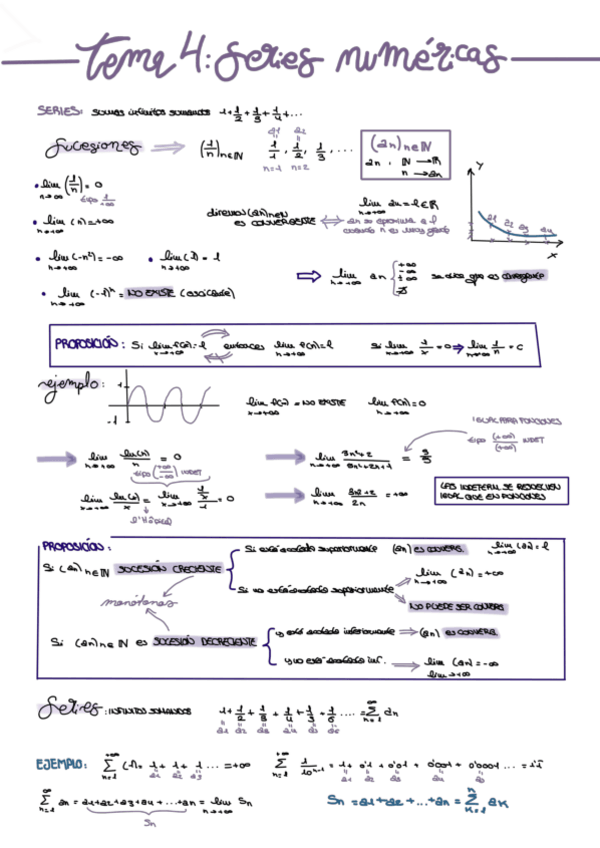 tema 4: series numéricas
SERIES: sumas infinitos sumandos 1+1/2+1/3+1/4+...
Sucesiones ⇒ (1/n)n∈ℕ 1/1, 1/2, 1/3, ...
a1 a2
n=1 n=2
(an)n∈ℕ
an: ℕ → ℝ
n → an
• lim n→∞ (1/n) = 0
tipo 1/∞
• lim n→+∞ (n) = +∞
diremos (an)n∈ℕ es CONVERGENTE ⇔ lim n→+∞ an = l ∈ ℝ
an se aproxima a l cuando n es muy grande
Y
a1 a2 a3 a4
X
• lim n→+∞ (-n²) = -∞ • lim n→+∞ (1) = 1
⇒ lim n→+∞ an { +∞ -∞ ±∞ ∄ se dice que es divergente
• lim n→+∞ (-1)ⁿ = NO EXISTE (oscilante)
PROPOSICIÓN: Si lim x→+∞ f(x) = l entonces lim n→+∞ f(n) = l Si lim x→+∞ 1/x = 0 ⇒ lim n→+∞ 1/n = 0
ejemplo: 1 -1 lim x→+∞ f(x) = NO EXISTE lim n→+∞ f(n) = 0
IGUAL PARA FUNCIONES
tipo (+∞)/(+∞) INDET
lim n→+∞ ln(n)/n = 0
tipo (+∞)/(+∞) INDET
lim x→+∞ ln(x)/x = lim x→+∞ (1/x)/1 = 0
L'Hôpital
lim n→+∞ 3n²+2/5n²+2n+1 = 3/5
lim n→+∞
2n = +∞
LAS INDETERM. SE RESUELVEN
IGUAL QUE EN FUNCIONES
PROPOSICIÓN:
Si (an)n∈ℕ SUCESIÓN CRECIENTE
Si está acotada superiormente (an) es CONVERG. lim n→+∞ (an) = l
Si no está acotada superiormente lim n→+∞ (an) = +∞
NO PUEDE SER CONVERG
monótonas
Si (an)n∈ℕ es SUCESIÓN DECRECIENTE
y está acotada inferiormente ⇒ (an) es CONVERG.
y no está acotada inf. → lim n→+∞ (an) = -∞
Series: INFINITOS SUMANDOS 1+1/2+1/3+1/4+1/5+1/6.... = ∑ n=1 ∞ an
a1 a2 a3 a4 a5 a6
EJEMPLO: ∑ n=1 +∞ (1)n = 1+1+1... = +∞ ∑ n=1 +∞ 1/10ⁿ⁻¹ = 1+0'1+0'01+0'001+0'0001... = 1'1
a1 a2 a3 a1 a2 a3 a4 a5
∑ n=1 ∞ an = a1+a2+a3+a4+...+an = lim n→+∞ Sn
Sn
Sn = a1+a2+...+an = ∑ k=1 n ak